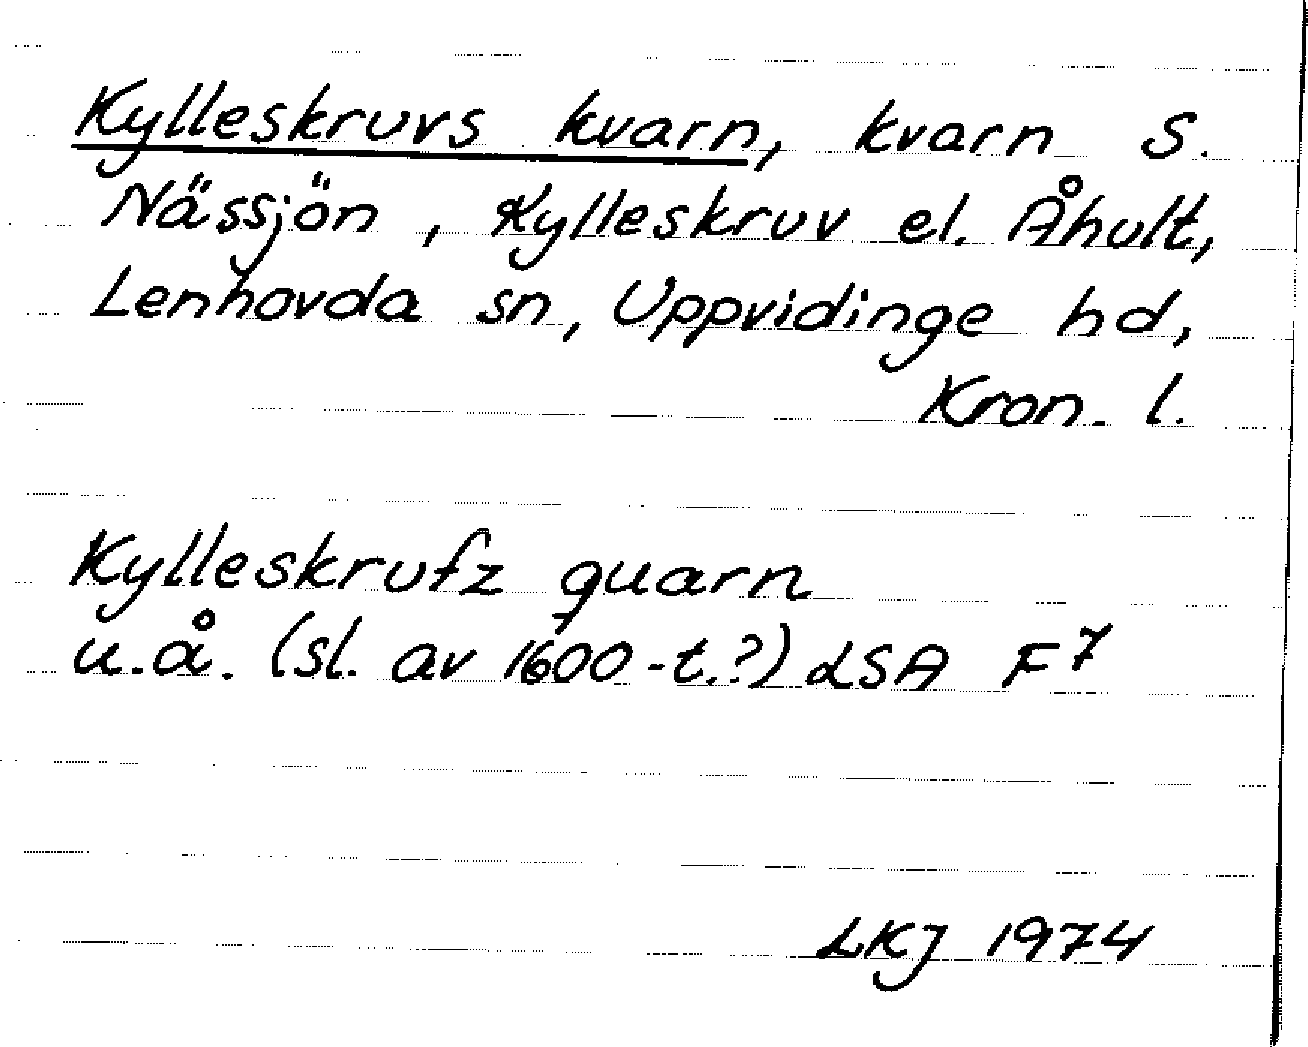 Kylleskruvs kvarn, kvarn S.
Nässjön, Kylleskruv el. Åhult,
Lenhovda sn, Uppvidinge hd,
Kron. l.
Kylleskrufz quarn
u.å. (sl. av 1600-t.?) LSA F7
LKJ 1974